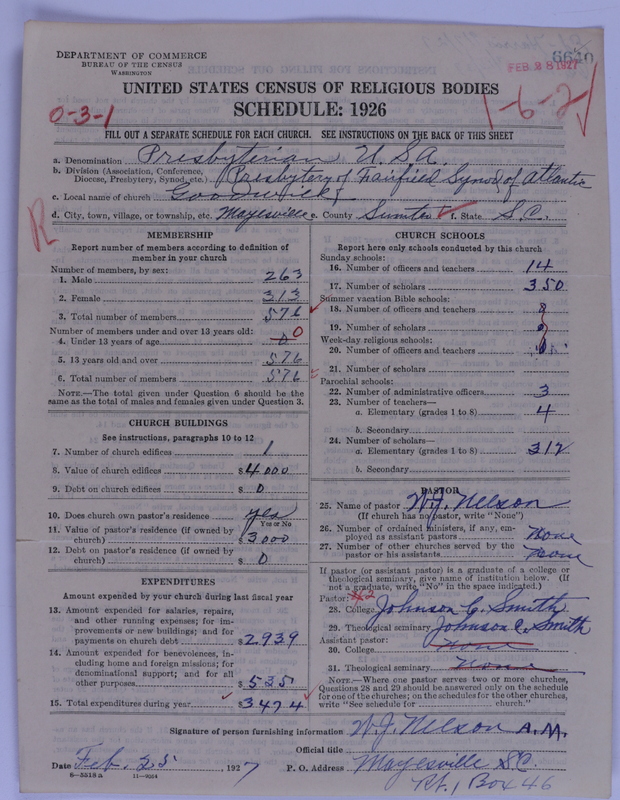 DEPARTMENT OF COMMERCE
BUREAU OF THE CENSUS
WASHINGTON
FEB 28 1927
UNITED STATES CENSUS OF RELIGIOUS BODIES
SCHEDULE: 1926
0-3-1
1-6-2
FILL OUT A SEPARATE SCHEDULE FOR EACH CHURCH. SEE INSTRUCTIONS ON THE BACK OF THIS SHEET
a. Denomination Presbyterian U.S.A.
b. Division (Association, Conference, Diocese, Presbytery, Synod, etc.) Presbytery of Fairfield Synod of Atlantic
c. Local name of church Goodwill
d. City, town, village, or township, etc. Mayesville e. County Sumter f. State S.C.
R
MEMBERSHIP
Report number of members according to definition of
member in your church
Number of members, by sex:
1. Male 263
2. Female 313
3. Total number of members 576
Number of members under and over 13 years old:
4. Under 13 years of age 0 0
5. 13 years old and over 576
6. Total number of members 576
NOTE.—The total given under Question 6 should be the
same as the total of males and females given under Question 3.
CHURCH BUILDINGS
See instructions, paragraphs 10 to 12
7. Number of church edifices 1
8. Value of church edifices $4000
9. Debt on church edifices $0
10. Does church own pastor's residence yes
Yes or No
11. Value of pastor's residence (if owned by
church) $3000
12. Debt on pastor's residence (if owned by
church) $0
EXPENDITURES
Amount expended by your church during last fiscal year
13. Amount expended for salaries, repairs,
and other running expenses; for im-
provements or new buildings; and for
payments on church debt $2939
14. Amount expended for benevolences, in-
cluding home and foreign missions; for
denominational support; and for all
other purposes $535
15. Total expenditures during year $3474
CHURCH SCHOOLS
Report here only schools conducted by this church
Sunday schools:
16. Number of officers and teachers 14
17. Number of scholars 350
Summer vacation Bible schools:
18. Number of officers and teachers
19. Number of scholars
Week-day religious schools:
20. Number of officers and teachers
21. Number of scholars
Parochial schools:
22. Number of administrative officers 3
23. Number of teachers—
a. Elementary (grades 1 to 8) 4
b. Secondary
24. Number of scholars—
a. Elementary (grades 1 to 8) 312
b. Secondary
PASTOR
25. Name of pastor W.J. Nelson
(If church has no pastor, write "None")
26. Number of ordained ministers, if any, em-
ployed as assistant pastors None
27. Number of other churches served by the
pastor or his assistants None
If pastor (or assistant pastor) is a graduate of a college or
theological seminary, give name of institution below. (If
not a graduate, write "No" in the space indicated.)
Pastor: #2
28. College Johnson C. Smith
29. Theological seminary Johnson C. Smith
Assistant pastor:
30. College None
31. Theological seminary None
NOTE.—Where one pastor serves two or more churches,
Questions 28 and 29 should be answered only on the schedule
for one of the churches; on the schedules for the other churches,
write "See schedule for church."
Signature of person furnishing information W.J. Nelson A.M.
Official title
Date Feb. 25 1927 P. O. Address Mayesville S.C.
6-5518a 11-9054
Rt. 1 Box 46